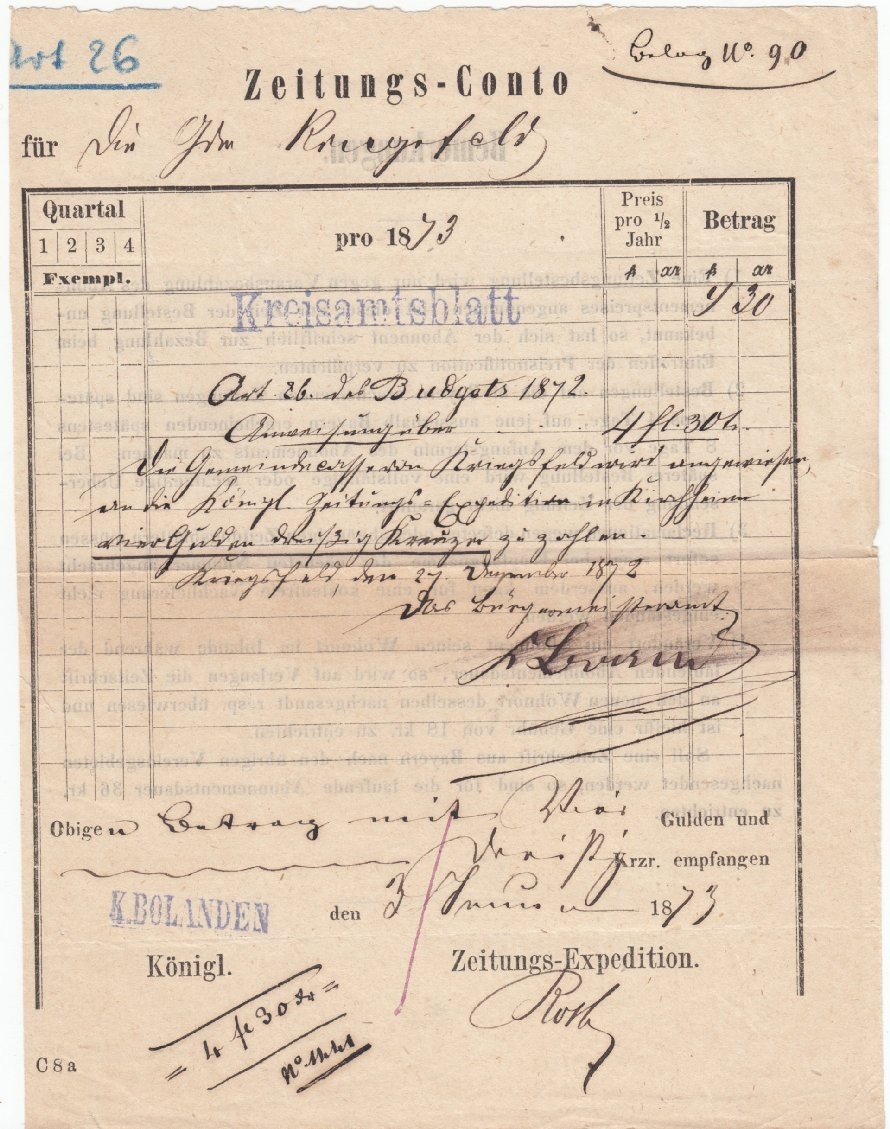 Art 26
Beleg No. 90
Zeitungs-Conto
für die Gde Kriegsfeld
Quartal
1 2 3 4
Exempl.
pro 1873
Preis
pro 1/2
Jahr
Betrag
fl xr fl xr
Kreisamtsblatt 4 30
Art. 26. des Budgets 1872.
Anweisung über 4 fl. 30 x.
Die Gemeindecasse von Kriegsfeld wird angewiesen,
an die Königl. Zeitungs-Expedition in Kirchheim
vier Gulden dreißig Kreuzer zu zahlen.
Kriegsfeld den 27. Dezember 1872
Das Bürgermeisteramt
Obigen Betrag mit Vier Gulden und
dreißig Krzr. empfangen
K.BOLANDEN
den 3 Januar 1873
Königl. Zeitungs-Expedition.
Roth
= 4 fl 30 xr =
No
C8a